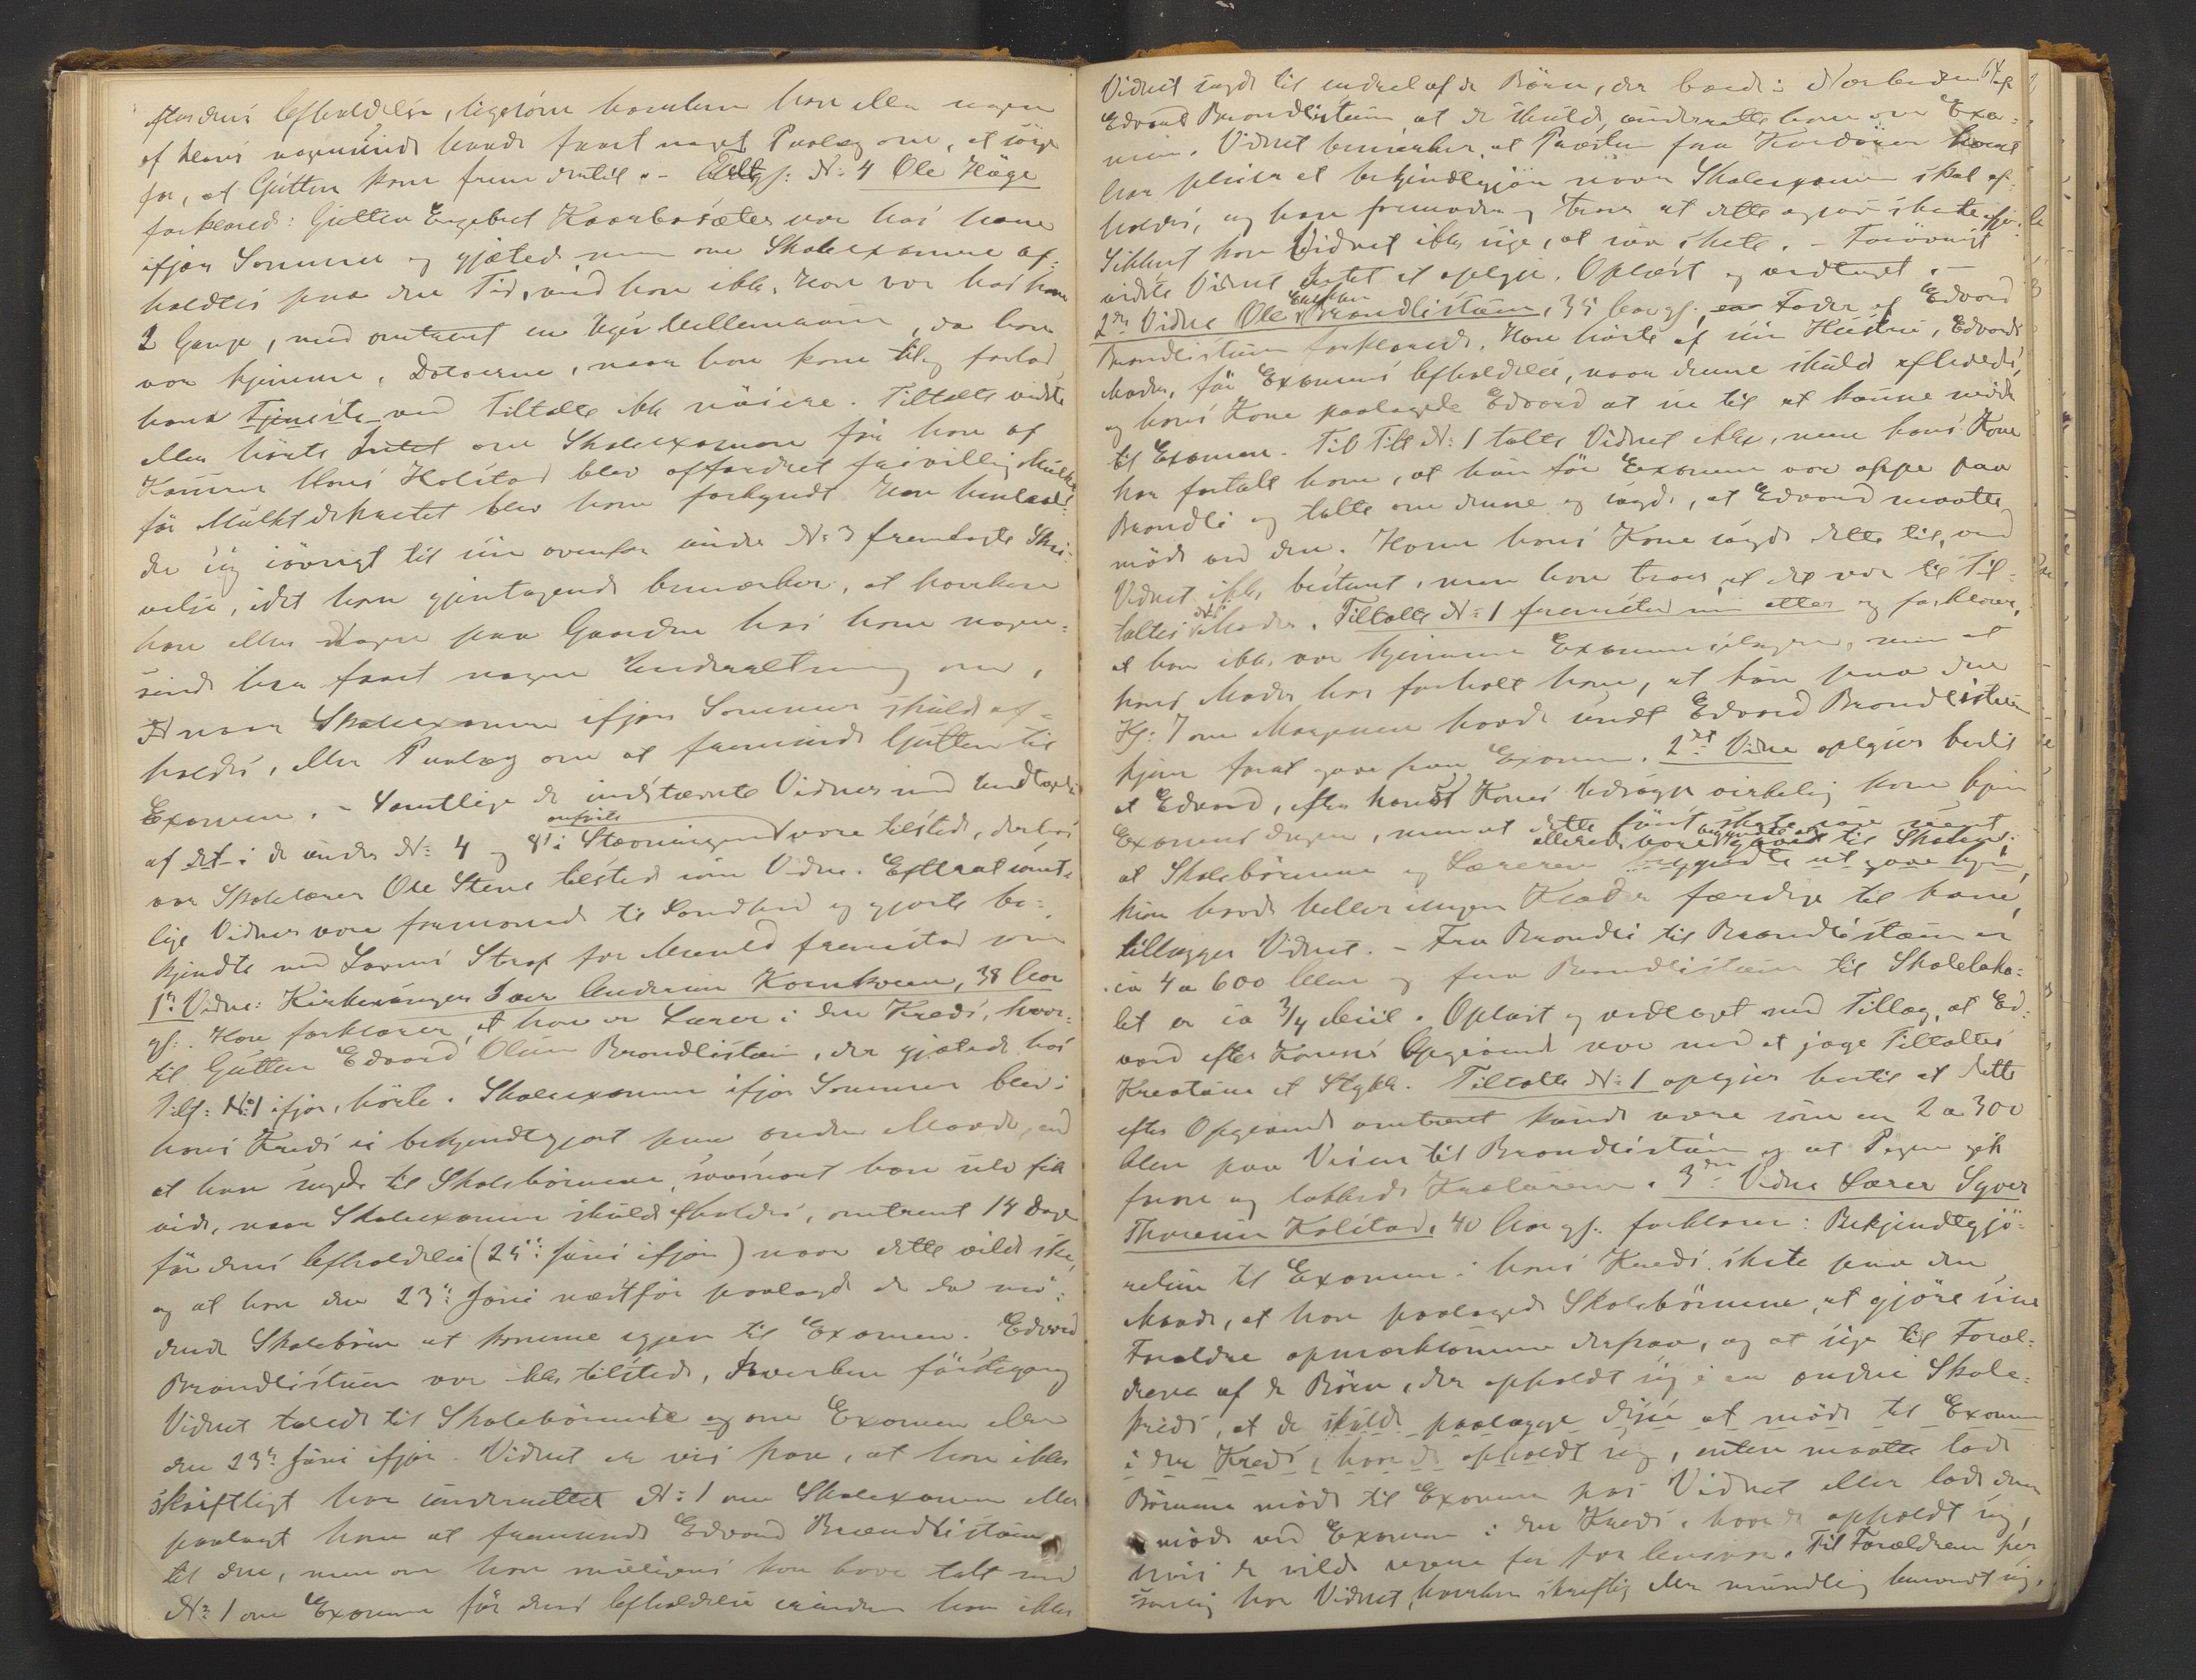 Examens Afholdelse, ligesom hverken han eller nogen
af hans nogensinde havde faaet noget Paalæg om, at sørge
for, at Gutten kom frem dertil. – Tiltalte N: 4 Ole Høge
forklared: Gutten Engebret Kaarbøsæter var hos ham
ifjor Sommer og gjætede, men om Skoleexamen af-
holdtes paa den Tid, ved han ikke. Han var hos ham
2 Gange, med omtrent en Uges Mellemrum, da han
var hjemme. Datoerne, naar han kom til og forlod
hans Tjeneste ved Tiltalte ikke nøiere. Tiltalte vidste
eller hørte Intet om Skoleexamen før han af
Hans Holstad blev opfordret frivillig Mulkt
før Mulktdekretet blev ham forkyndt. Han henhold-
der sig iøvrigt til sin ovenfor under N: 3 fremlagte Skri-
velse, idet han gjentagende bemærker, at hverken
han eller Nogen paa Gaarden hos ham nogen-
sinde har faaet nogen Underretning om,
naar Skoleexamen ifjor Sommer skulde af-
holdes, eller Paalæg om at fremsende Gutten til
Examen. – Samtlige de indstævnte Vidner med Undtagelse
af det i de under N: 4 og 8 i Stævningen anførte vare tilstede, derhos
var Skolelærer Ole Stene tilstede som Vidne. Efterat samt-
lige Vidner vare formanede til Sandhed og gjorte be-
kjendte med Lovens Straf for Meened fremstod som
1ste Vidne: Kirkesanger Iver Andersen Kornkveen, 38 Aar
gl. Han forklarer, at han er Lærer i den Kreds, hvor-
til Gutten Edvard Olsen Brandlistuen, der gjætede hos
Tilt: N: 1 ifjor, hørte. Skoleexamen ifjor Sommer blev i
hans Kreds ei bekjendtgjort paa anden Maade, end
at han sagde til Skolebørnene, saasnart han selv fik
vide, naar Skoleexamen skulde afholdes, omtrent 14 Dage
før dens Afholdelse (25de Juni ifjor) naar dette vilde ske,
og at han den 23de Juni næstfør paalagde de da mø-
dende Skolebørn at komme igjen til Examen. Edvard
Brandlistuen var ikke tilstede, hverken førstegang
Vidnet talede til Skolebørnene om Examen eller
den 23de Juni ifjor. Vidnet er vis paa, at han ikke
skriftligt har underrettet N: 1 om Skoleexamen eller
paalagt ham at fremsende Edvard Brandlistuen
til den, men om han muligens kan have talt med
N: 1 om Examen før dens Afholdelse erindrer han ikke
64
Vidnet sagde til endeel af de Børn, der boede i Nærheden af
Edvard Brandlistuen, at de skulde underrette ham om Exa-
men. Vidnet bemærker, at Præsten fra Kordøren
har pleiet at bekjendtgjøre naar Skoleexamen skal af-
holdes, og han formoder og troer at dette ogsaa skete ifjor.
Sikkert kan Vidnet ikke sige, at saa skete. – Forøvrigt
vidste Vidnet Intet at oplyse. Oplæst og vedtaget. –
2det Vidne Ole Brandlistuen, 35 Aar gl., Fader af Edvard
Brandlistuen forklarede. Han hørte af sin Hustru, Edvards
Moder, før Examens Afholdelse, naar denne skulde afholdes,
og hans Kone paalagde Edvard at se til at kunne møde
til Examen. Til Tilt N: 1 talte Vidnet ikke, men hans Kone
har fortalt ham, at hun før Examen var oppe paa
Brandli og talte om denne og sagde, at Edvard maatte
møde ved den. Hvem hans Kone sagde dette til, ved
Vidnet ikke bestemt, men han troer, at det var til Til-
taltes Moder. Tiltalte N: 1 fremsted nu atter og forklarer,
at han ikke var hjemme Examensdagen, men at
hans Moder har fortalt ham, at hun paa den
Kl: 7 om Morgenen havde sendt Edvard Brandlistuen
hjem forat gaae paa Examen. 2det Vidne oplyser hertil
at Edvard, efter hans Kones Udsagn virkelig kom hjem
Examensdagen, men at dette først skete saa seent
at Skolebørnene og Læreren allerede vare begyndte at gaae til Skolen;
hun havde heller ingen Klæder færdige til ham,
tillægger Vidnet. – Fra Brandli til Brandlistuen er
ca 4 a 600 Alen og fra Brandlistuen til Skoleloka-
let er ca 3/4 Miil. Oplæst og vedtaget med Tillæg, at Ed-
vard efter Konens Opgivende var med at jage Tiltaltes
Kreature et Stykke. Tiltalte N: 1 oplyser hertil at dette
efter Opgivende omtrent kunde være som en 2 a 300
Alen paa Veien til Brandlistuen og at Pigen gik
foran og lokkede Kreaturene. 3die Vidne Lærer Syver
Thoresen Kolstad, 40 Aar gl. forklarer: Bekjendtgjø-
relsen til Examen i hans Kreds skete paa den
Maade, at han paalagde Skolebørnene, at gjøre sine
Forældre opmærksomme derpaa, og at sige til Foræl-
drene af de Børn, der opholdt sig i en anden Skole-
kreds, at de skulde paalægge disse at møde til Examen
i den Kreds, hvor de opholdt sig, enten maatte lade
Børnene møde til Examen hos Vidnet eller lade dem
møde ved Examen i den Kreds, hvor de opholdt sig,
hvis de vilde være fri for Ansvar. Til Forældrene per-
sonlig har Vidnet, hverken skriftlig eller mundlig henvendt sig,